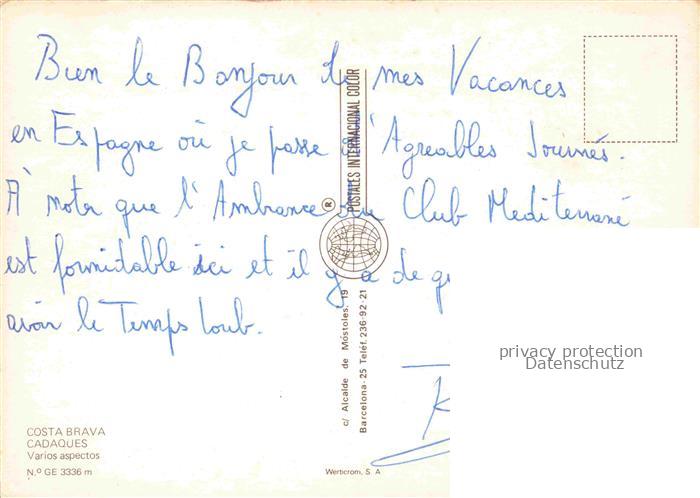 Bien le Bonjour de mes Vacances
en Espagne où je passe d'Agreables Journés.
À noter que l'Ambiance du Club Mediterrané
est formidable ici et il y a de
avoir le Temps
POSTALES INTERNACIONAL COLOR
®
c/ Alcalde de Móstoles, 19
Barcelona-25 Teléf. 236-92-21
privacy protection
Datenschutz
COSTA BRAVA
CADAQUES
Varios aspectos
N.º GE 3336 m
Werticrom, S. A